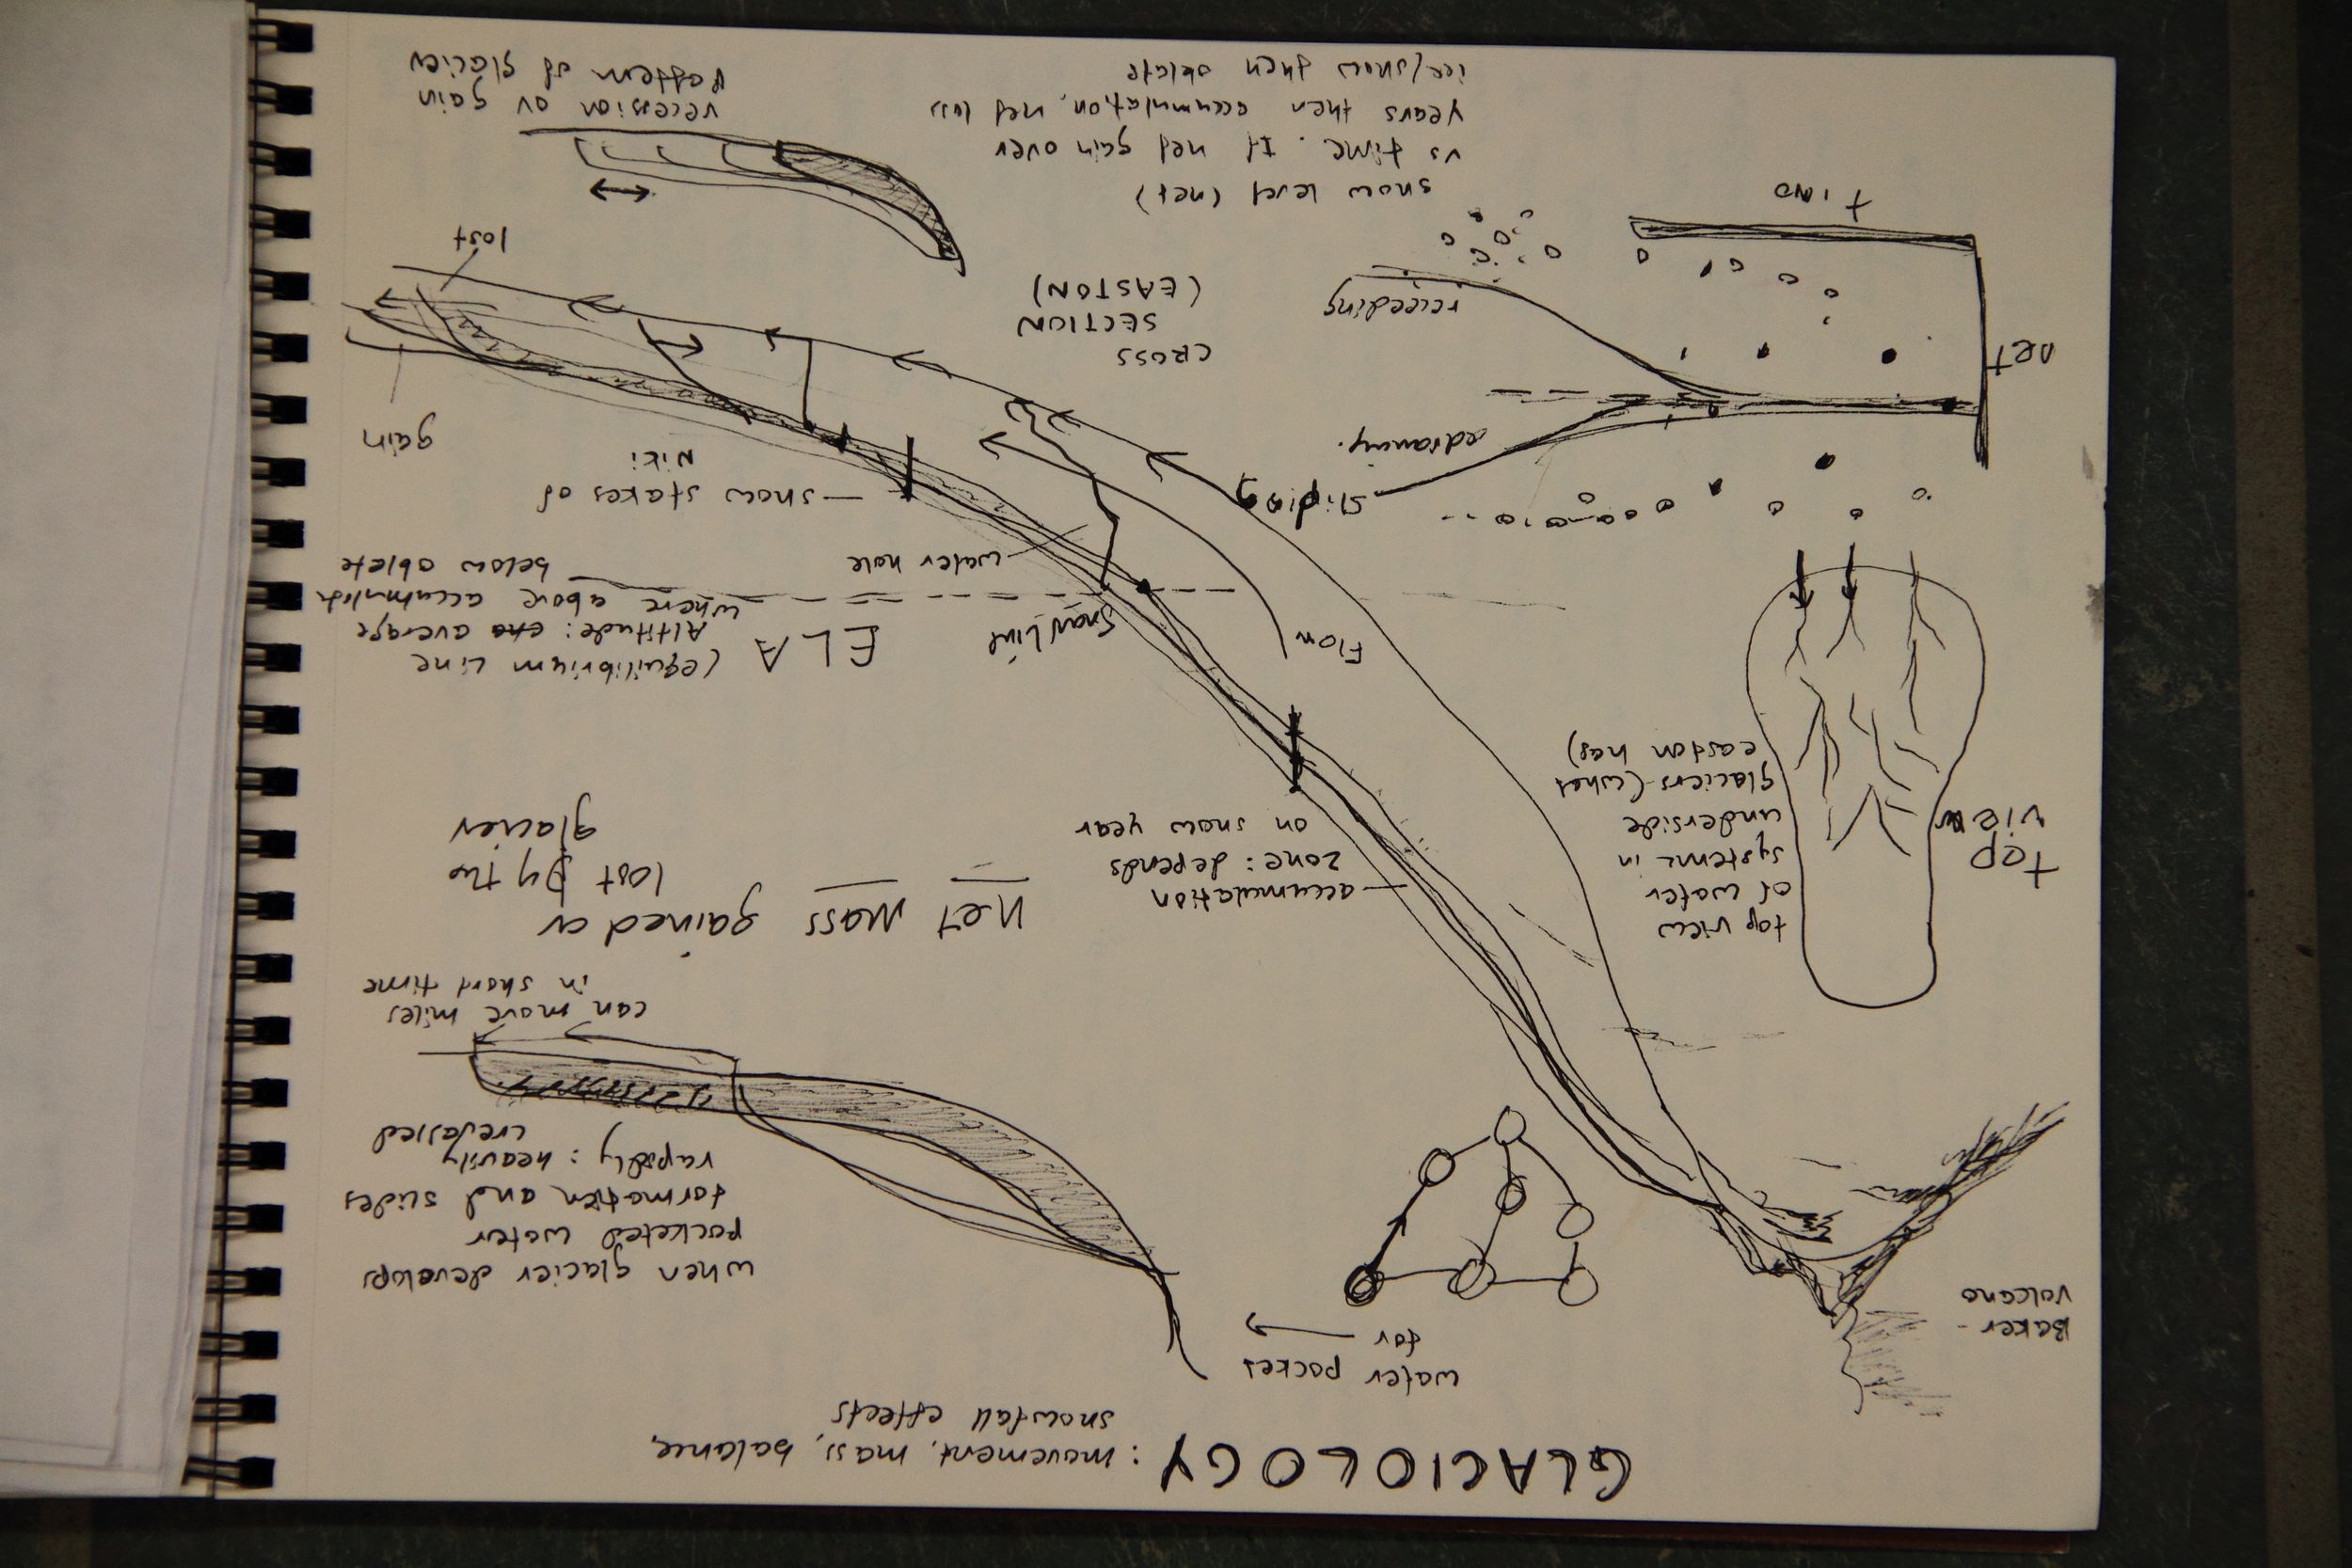 GLACIOLOGY : movement, mass, balance,
snowfall effects
Baker -
volcano
water pocket
for
when glacier develops
pocketed water
formation and slides
rapidly : heavily
crevassed
can move miles
in short time
Top
view
top view
of water
systems in
underside
glaciers (what
easton has)
accumulation
zone : depends
on snow year
net mass gained or
lost by the
glacier
Flow
snowline
ELA
(equilibrium line
Altitude : average
where above accumulate
below oblete
water hole
snow stakes of
Niki
gain
lost
CROSS
SECTION
(EASTON)
net
time
sliding
receding
snow level (net)
vs time. If net gain over
years then accumulation, net loss
ice/snow then oblete
recession or gain
pattern of glacier